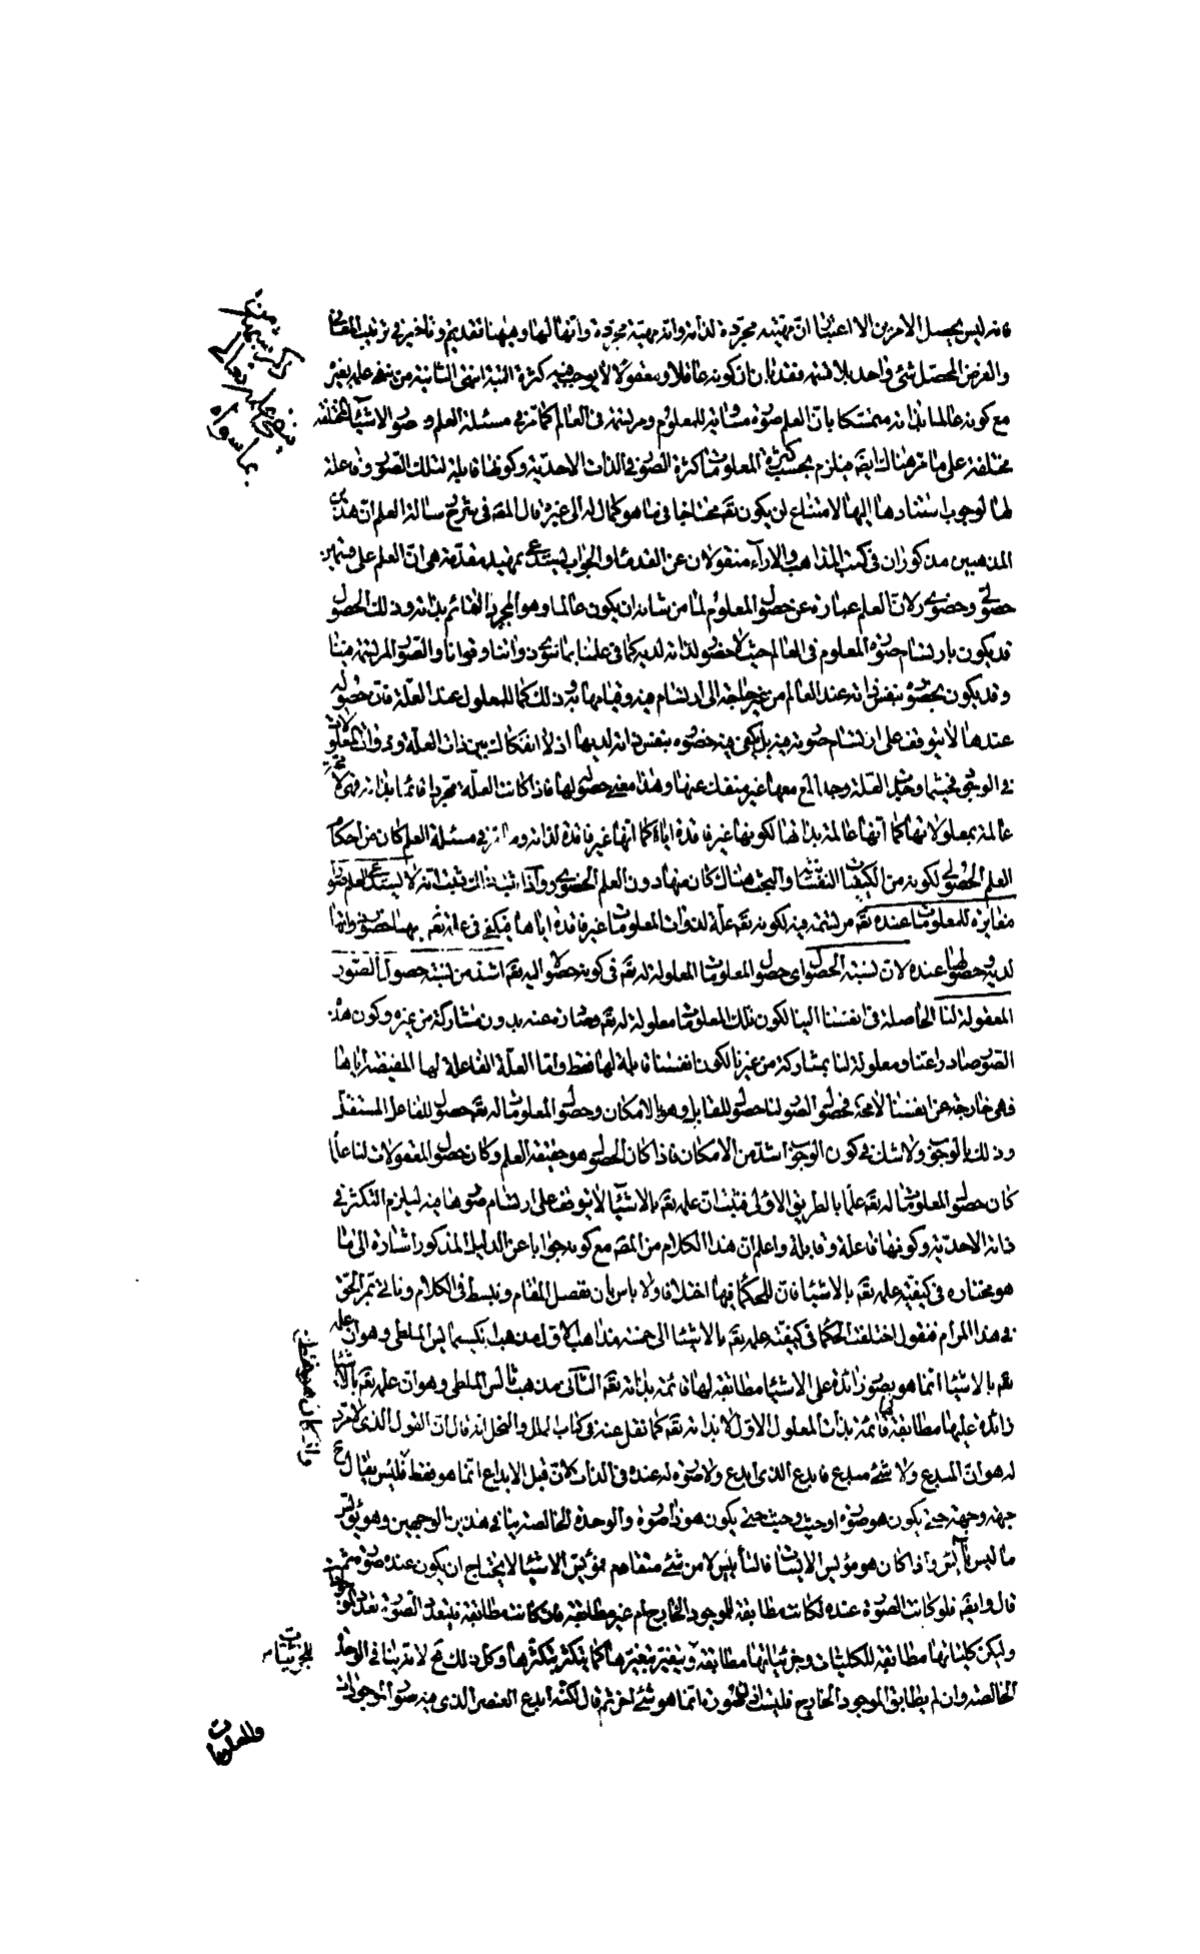 فانه ليس يحصل الامرين الا اعتبار ان مهيته مجردة لذاته وانه مهية مجردة وانها لها وههنا تقديم وتاخير فى ترتيب المعانى
والغرض المحصل شئ واحد بلا قسمة فقد بان ان كونه عاقلا ومعقولا لا يوجب فيه كثرة البتة انتهى الثانية من نفى علمه بغيره
مع كونه عالما بذاته متمسكا بان العلم صورة مساوية للمعلوم ومرتسمة فى العالم كما مر فى مسئلة العلم وصور الاشياء المختلفة
مختلفة على ما مر هناك ايضا فيلزم بحسب كثرة المعلومات كثرة الصور فى الذات الاحدية وكونها قابلة لتلك الصور وفاعلة
لها لوجوب استنادها اليها لامتناع ان يكون تعه محتاجا فى ما هو كمال له الى غيره قال المصه فى شرح رسالة العلم ان هذين
المذهبين مذكوران فى كتب المذاهب والاراء منقولان عن القدماء والجواب يستدعى تمهيد مقدمة هى ان العلم على قسمين
حصولى وحضورى لان العلم عبارة عن حصول المعلوم لما من شانه ان يكون عالما وهو المجرد القائم بذاته وذلك الحصول
قد يكون بارتسام صورة المعلوم فى العالم حيث لا حضور لذاته لديه كما فى علمنا بما سوى ذواتنا وقوانا والصور المرتسمة فينا
وقد يكون بحضوره بنفس ذاته عند العالم من غير حاجة الى ارتسام فيه وقيامها به وذلك كما للمعلول عند العلة فان حصوله
عندها لا يتوقف على ارتسام صورته فيه بل يكفى فيه حضوره بنفس ذاته لديها اذ لا انفكاك بين ذات العلة وذوات المعلولات
فى الوجود فحيثما وجدت العلة وجدا مع معها غير منفك عنها وهذا معنى حصوله لها فاذا كانت العلة مجردا قائما بذاته فهى لا محة
عالمة بمعلولاتها كما انها عالمة بذاتها لكونها غير فاقدة اياه كما انها غير فاقدة لذاته وما مر فى مسئلة العلم كان من احكام
العلم الحصولى لكونه من الكيفيات النفسانية والبحث هناك كان منها دون العلم الحضورى واذا اثبت ذلك ثبت انه لا يستدعى العلم صورا
مغايرة للمعلومات عنده تعه مرتسمة فيه لكونه تعه علة لذوات المعلومات غير فاقدة اياها فيكفى فى علمه تعه بها حضور ذواتها
لديه وحصولها عنده لان نسبة الحصول اى حصول المعلومات المعلولة له تعه فى كونه حصولا اليه تعه اشد من نسبة حصول الصور
المعقولة لنا الحاصلة فى انفسنا الينا لكون تلك المعلومات معلولة له تعه وصادرة عنه بدون مشاركة من غيره وكون هذه
الصور صادرة عنا ومعلولة لنا بمشاركة من غيرنا لكون انفسنا قابلة لها فقط واما العلة الفاعلة لها المفيضة اياها
فهى خارجة عن انفسنا لا محة فحصول الصور لنا حصول للقابل وهو بالامكان وحصول المعلومات له تعه حصول للفاعل المستقل
وذلك بالوجوب ولا شك فى كون الوجوب اشد من الامكان فاذا كان الحصول هو حقيقة العلم وكان حصول المعقولات لنا علما
كان حصول المعلومات له تعه علما بالطريق الاولى فثبت ان علمه تعه بالاشياء لا يتوقف على ارتسام صورها فيه ليلزم التكثر فى
ذاته الاحدية وكونها فاعلة وقابلة واعلم ان هذا الكلام من المصه مع كونه جوابا عن الدليل المذكور اشارة الى ما
هو مختاره فى كيفية علمه تعه بالاشياء فان للحكماء فيها اختلافا ولا باس بان نفصل المقام ونبسط فى الكلام ونات بمر الحق
فى هذا المرام فنقول اختلفت الحكماء فى كيفية علمه تعه بالاشياء الى خمسة مذاهب الاول مذهب انكسيمايس الملطى وهو ان علمه
تعه بالاشياء انما هو بصور زائدة على الاشياء مطابقة لها قائمة بذاته تعه الثانى مذهب ثاليس الملطى وهو ان علمه تعه بالاشياء
زائدة عليها مطابقة لها قائمة بذات المعلول الاول لا بذاته تعه كما نقل عنه فى كتاب الملل والنحل انه قال ان القول الذى لا مرد
له هو ان المبدع ولا شئ مبدع فابدع الذى ابدع ولا صورة له عنده فى الذات لان قبل الابداع انما هو فقط فليس يقال ح
جهة وجهة حتى يكون هو وصورة او حيث وحيث حتى يكون هو ذا صورة والوحدة الخالصة تنافى هذين الوجهين وهو يؤيس
ما ليس بايس واذا كان هو مؤيس الايسات فالتاييس لا من شئ متقادم فمؤيس الاشياء لا يحتاج ان يكون عنده صورة
قال وايضه فلو كانت الصورة عنده لكانت مطابقة للموجود الخارج ام غير مطابقة فان كانت مطابقة فيتعدد الصور تعدد الموجودات
وليكن كلياتها مطابقة للكليات وجزئياتها مطابقة للجزئيات ويتغير بتغيرها كما يتكثر بتكثرها وكل ذلك مح لانه ينافى الوحدة
الخالصة وان لم يطابق الموجود الخارج فليست اذن صورة انما هو شئ اخر ثم قال لكنه ابدع العنصر الذى فيه صور الموجودات
والمعلومات